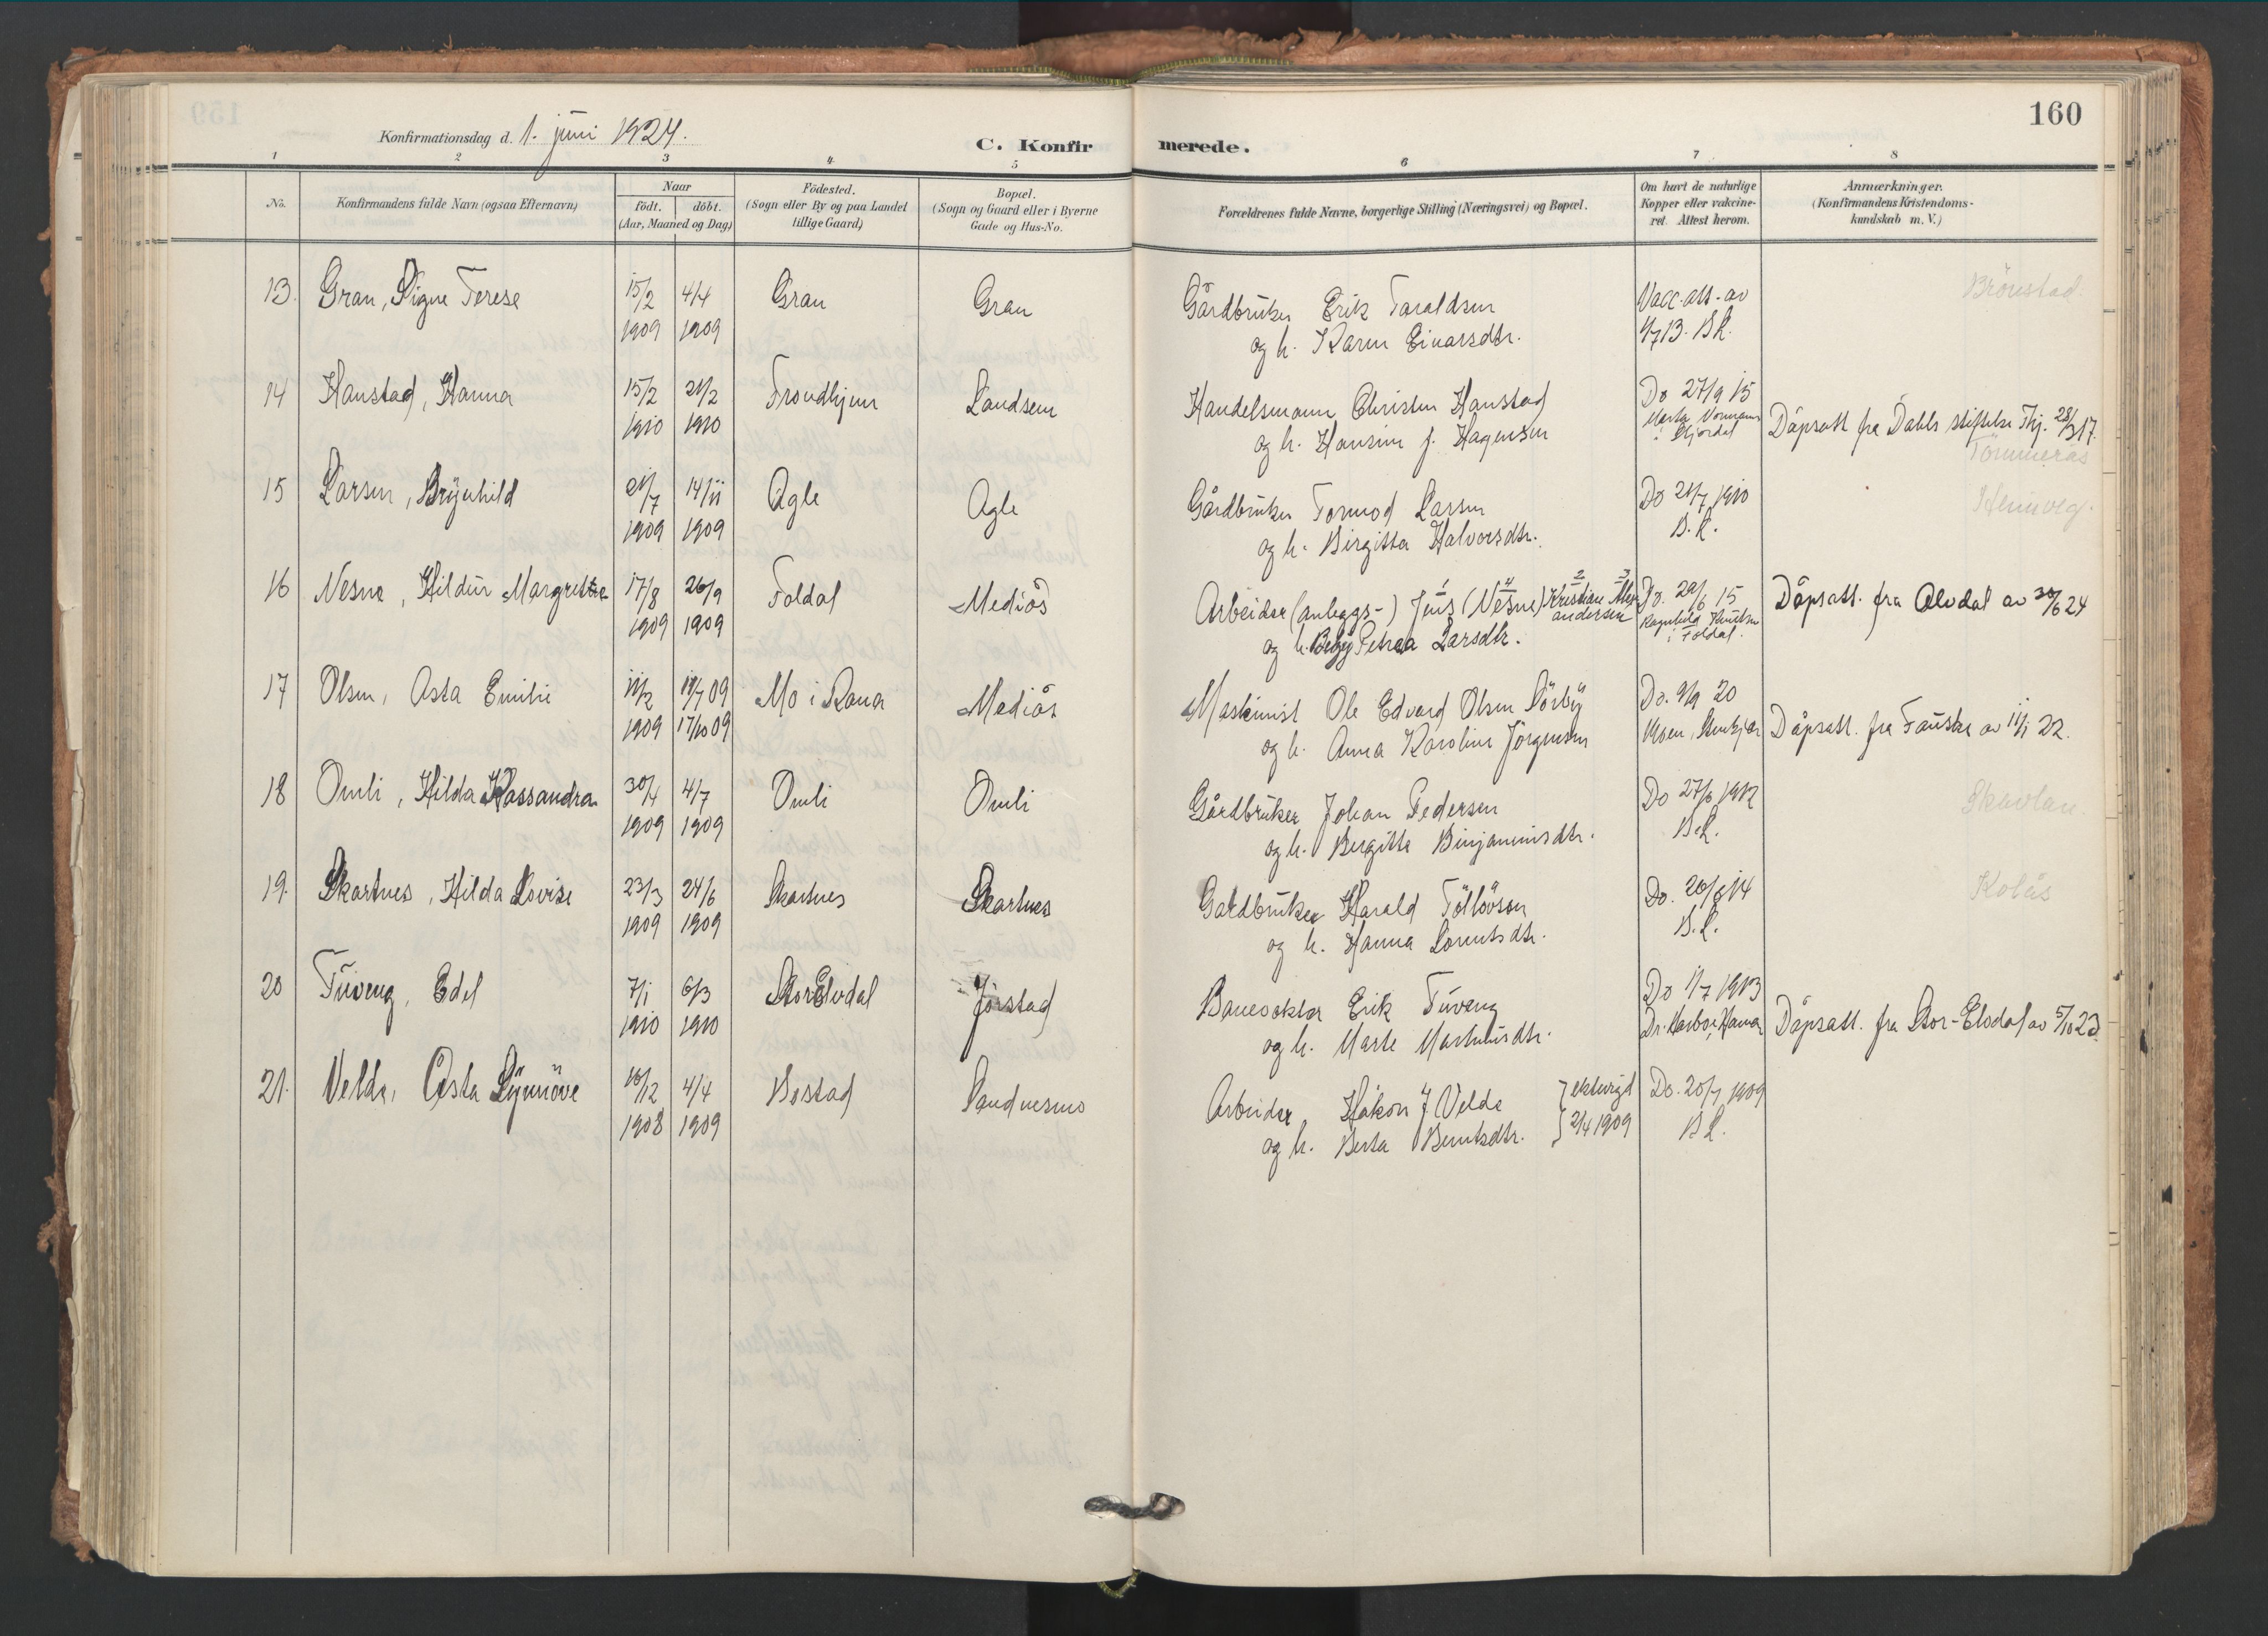 160
Konfirmationsdag d. 1. juni 1924.
C. Konfirmerede.
1 2 3 4 5 6 7 8
No.
Konfirmandens fulde Navn (ogsaa Efternavn)
Naar
födt. döbt.
(Aar, Maaned og Dag)
Födested.
(Sogn eller By og paa Landet
tillige Gaard)
Bopæl.
(Sogn og Gaard eller i Byerne
Gade og Hus-No.
Forældrenes fulde Navne, borgerlige Stilling (Næringsvei) og Bopæl.
Om havt de naturlige
Kopper eller vakcine-
ret. Attest herom.
Anmærkninger.
(Konfirmandens Kristendoms-
kundskab m. V.)
13. Gran, Signe Terese 15/2 4/4 Gran Gran Gårdbruker Erik Taraldsen Vacc. att. av Brönstad
1909 1909 og h. Karen Einarsdtr. 4/7 13. B.L.
14 Hanstad, Hanna 15/2 21/2 Trondhjem Landsem Handelsmann Christen Hanstad Do 27/9 15
1910 1910 og h. Hansine f. Hagensen Dåpsatt fra Dahls stiftelse Thj. 28/3 17.
Tömmerås
15 Larsen, Brynhild 21/7 14/11 Agle Agle Gårdbruker Tormod Larsen Do 21/7 1910 Hemveg.
1909 1909 og h. Birgitta Halvorsdtr. B.L.
16 Nesne, Hildur Margrethe 17/8 26/9 Foldal Mediås Arbeider (anleggs-) Jens (Nesne) Kristian Alexandersen Do. 29/6 15 Dåpsatt. fra Alvdal av 30/6 24
1909 1909 og h. Petrea Larsdtr. Ragnhild Knutsen i Foldal.
17 Olsen, Asta Emilie 11/2 18/7 09 Mo i Rana Mediås Maskinist Ole Edvard Olsen Sörby Do. 9/9 20
1909 17/10 09 og h. Anna Karoline Jörgensen Moen, Stenkjær Dåpsatt. fra Fauske av 11/1 22.
18 Omli, Hilda Kassandra 30/4 4/7 Omli Omli Gårdbruker Johan Pedersen Do 27/6 1912 Skavlan
1909 1909 og h. Bergitte Binjaminsdtr. B.L.
19. Skartnes, Hilda Lovise 23/3 24/6 Skartnes Skartnes Gardbruker Harald Tollövsen Do. 20/6 14 Kolås
1909 1909 og h. Hanna Lorntsdtr. B.L.
20 Tuveng, Edel 7/1 6/3 Stor Elvdal Jörstad Banevokter Erik Tuveng Do 1/7 1913
1910 1910 og h. Marte Martinusdtr. Dr. Harboe, Hamar Dåpsatt. fra Stor-Elvdal av 5/10 23.
21. Velde, Asta Synnöve 10/12 4/4 Bostad Sandnesmo Arbeider Håkon J Velde } ektevigd Do. 20/7 1909
1908 1909 og h. Berta Berntsdtr. } 2/4 1909 B.L.